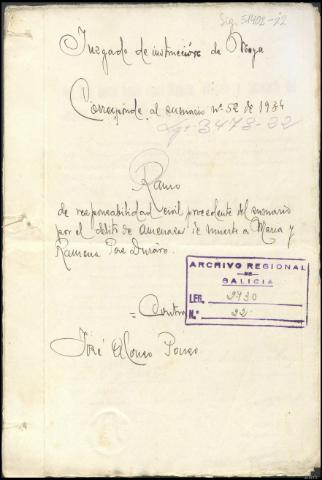 Sig. 51402-12
Juzgado de instrucción de Noya
Corresponde al sumario nº 52 de 1934
Lg. 3473-22
Ramo
de responsabilidad civil procedente del sumario
por el delito de amenazas de muerte a Maria y
Ramona Pose Duran.
ARCHIVO REGIONAL
DE
GALICIA
LEG. 2930
N.º 22
= Contra
José Alonso